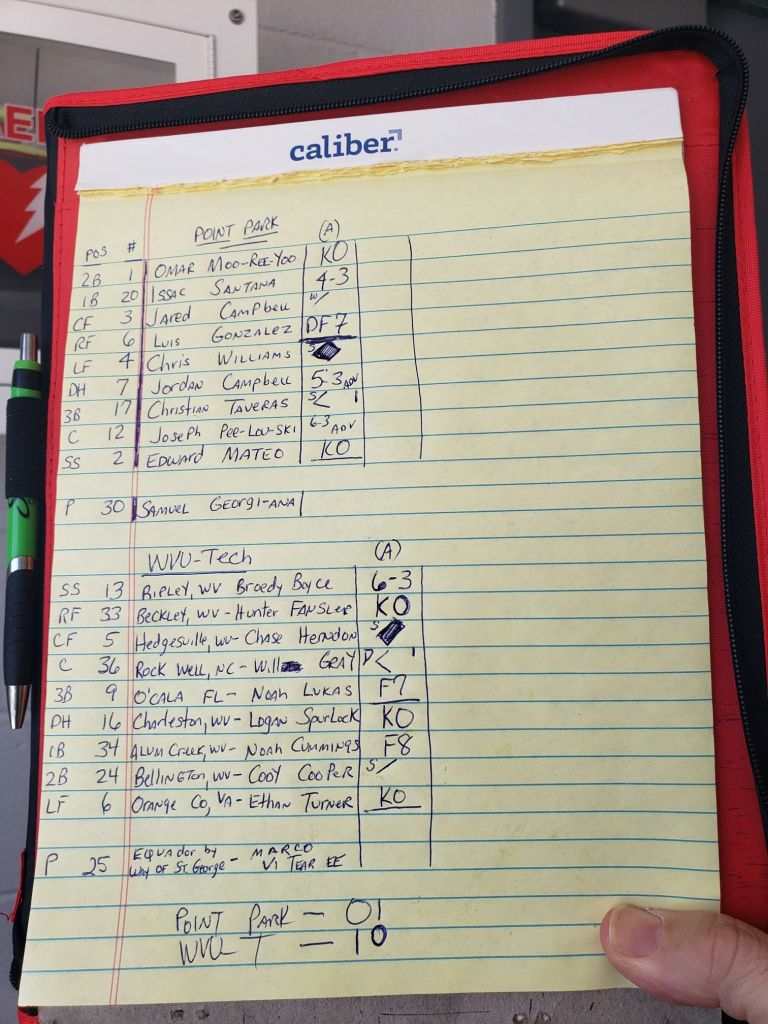 caliber
POINT PARK (A)
POS #
2B 1 OMAR MOO-REE-YOO KO
1B 20 ISSAC SANTANA 4-3
CF 3 Jared CAMPbell W/
RF 6 LUIS GONZALEZ DF7
LF 4 Chris WILLIAMS S
DH 7 Jordan Campbell 5-3 ADV
3B 17 Christian TAVERAS S< 1
C 12 Joseph PEE-LOU-SKI 6-3 ADV
SS 2 EDWARD MATEO KO
P 30 SAMUEL GEORGI-ANA
WVU-Tech (A)
SS 13 RIPLEY, WV Broedy Boyce 6-3
RF 33 BECKLEY, WV - Hunter FANSLER KO
CF 5 Hedgesville, WV - Chase Herndon S
C 36 ROCK WELL, NC - Will GRAY D< 1
3B 9 O'CALA FL - NOAH LUKAS F7
DH 16 Charleston, WV - LOGAN SpurLock KO
1B 34 ALUM CREEK, WV - NOAH CUMMINGS F8
2B 24 BELLINGTON, WV - COOY COOPER S/
LF 6 ORANGE CO, VA - EThAN TURNER KO
P 25 EQUAdor by
WAY OF ST. George - MARCO
VI TEAR EE
POINT PARK - 01
WVU T - 10